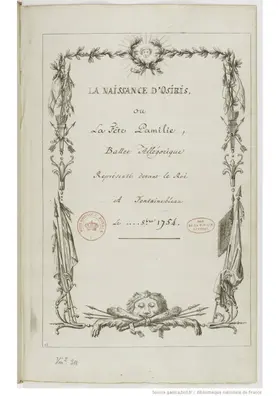 LA NAISSANCE D'OSIRIS.
ou
La Fête Pamilie,
Ballet Allégorique
Représenté devant le Roi
A Fontainebleau
le 1754.
Source gallica.bnf.fr / Bibliothèque nationale de France